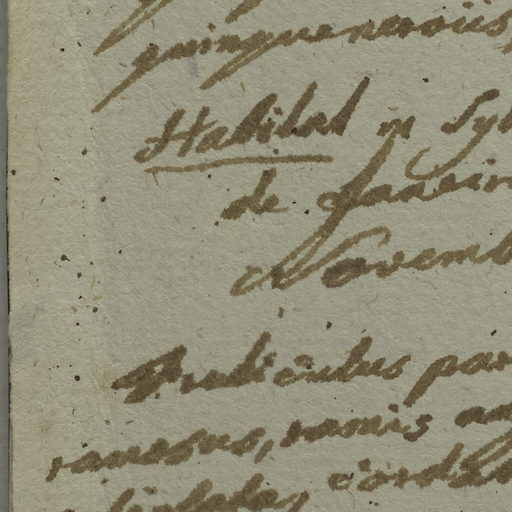 quinquenerviis,
Habitat in Syl
de Janein
Novemb
Fruticulus par
ramosus, ramis an
cordat